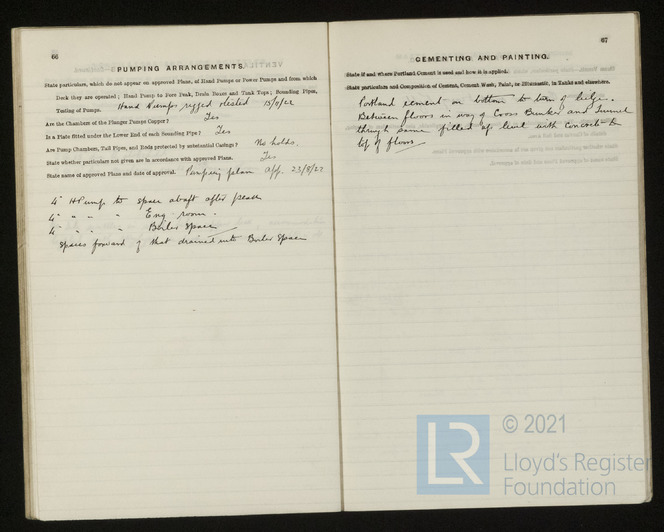 66
PUMPING ARRANGEMENTS.
State particulars, which do not appear on approved Plans, of Hand Pumps or Power Pumps and from which
Deck they are operated; Hand Pump to Fore Peak, Drain Boxes and Tank Tops; Sounding Pipes,
Testing of Pumps. Hand Pumps rigged & tested 15/9/22
Are the Chambers of the Plunger Pumps Copper? Yes
Is a Plate fitted under the Lower End of each Sounding Pipe? Yes
Are Pump Chambers, Tail Pipes, and Rods protected by substantial Casings? No holds.
State whether particulars not given are in accordance with approved Plans. Yes
State name of approved Plans and date of approval. Pumping plan app. 23/8/22
4" H Pump to space abaft after peak
4" " " " Eng room.
4" " " " Boiler Space
Spaces forward of that drained into Boiler Space
67
CEMENTING AND PAINTING.
State if and where Portland Cement is used and how it is applied.
State particulars and Composition of Cement, Cement Wash, Paint, or Bitumastic, in Tanks and elsewhere.
Portland cement on bottom to turn of bilge.
Between floors in way of Cross Bunker and Tunnel
through same filled up level with Concrete to
top of floors
LR
© 2021
Lloyd's Register
Foundation